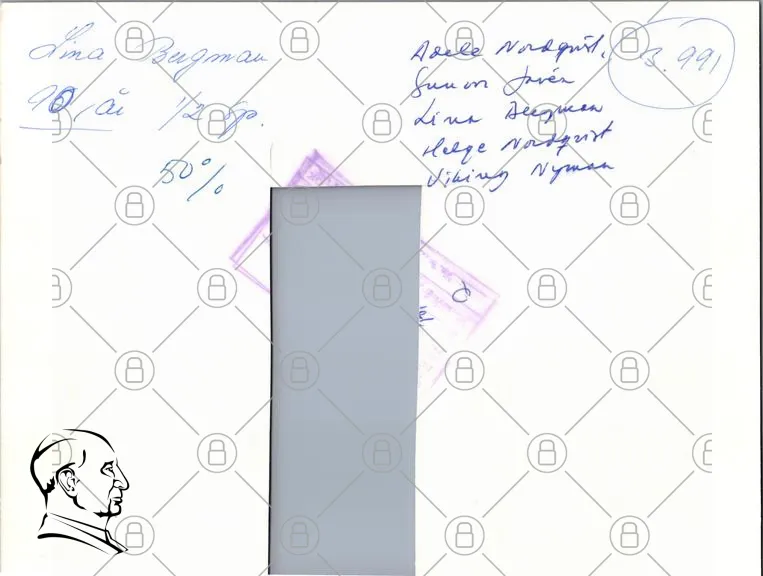 Lina Bergman
90 år 1/2 sp.
50%
Adele Nordqvist.
Gunvor
Lina Bergman
Helge Nordqvist
Viking Nyman
3.991